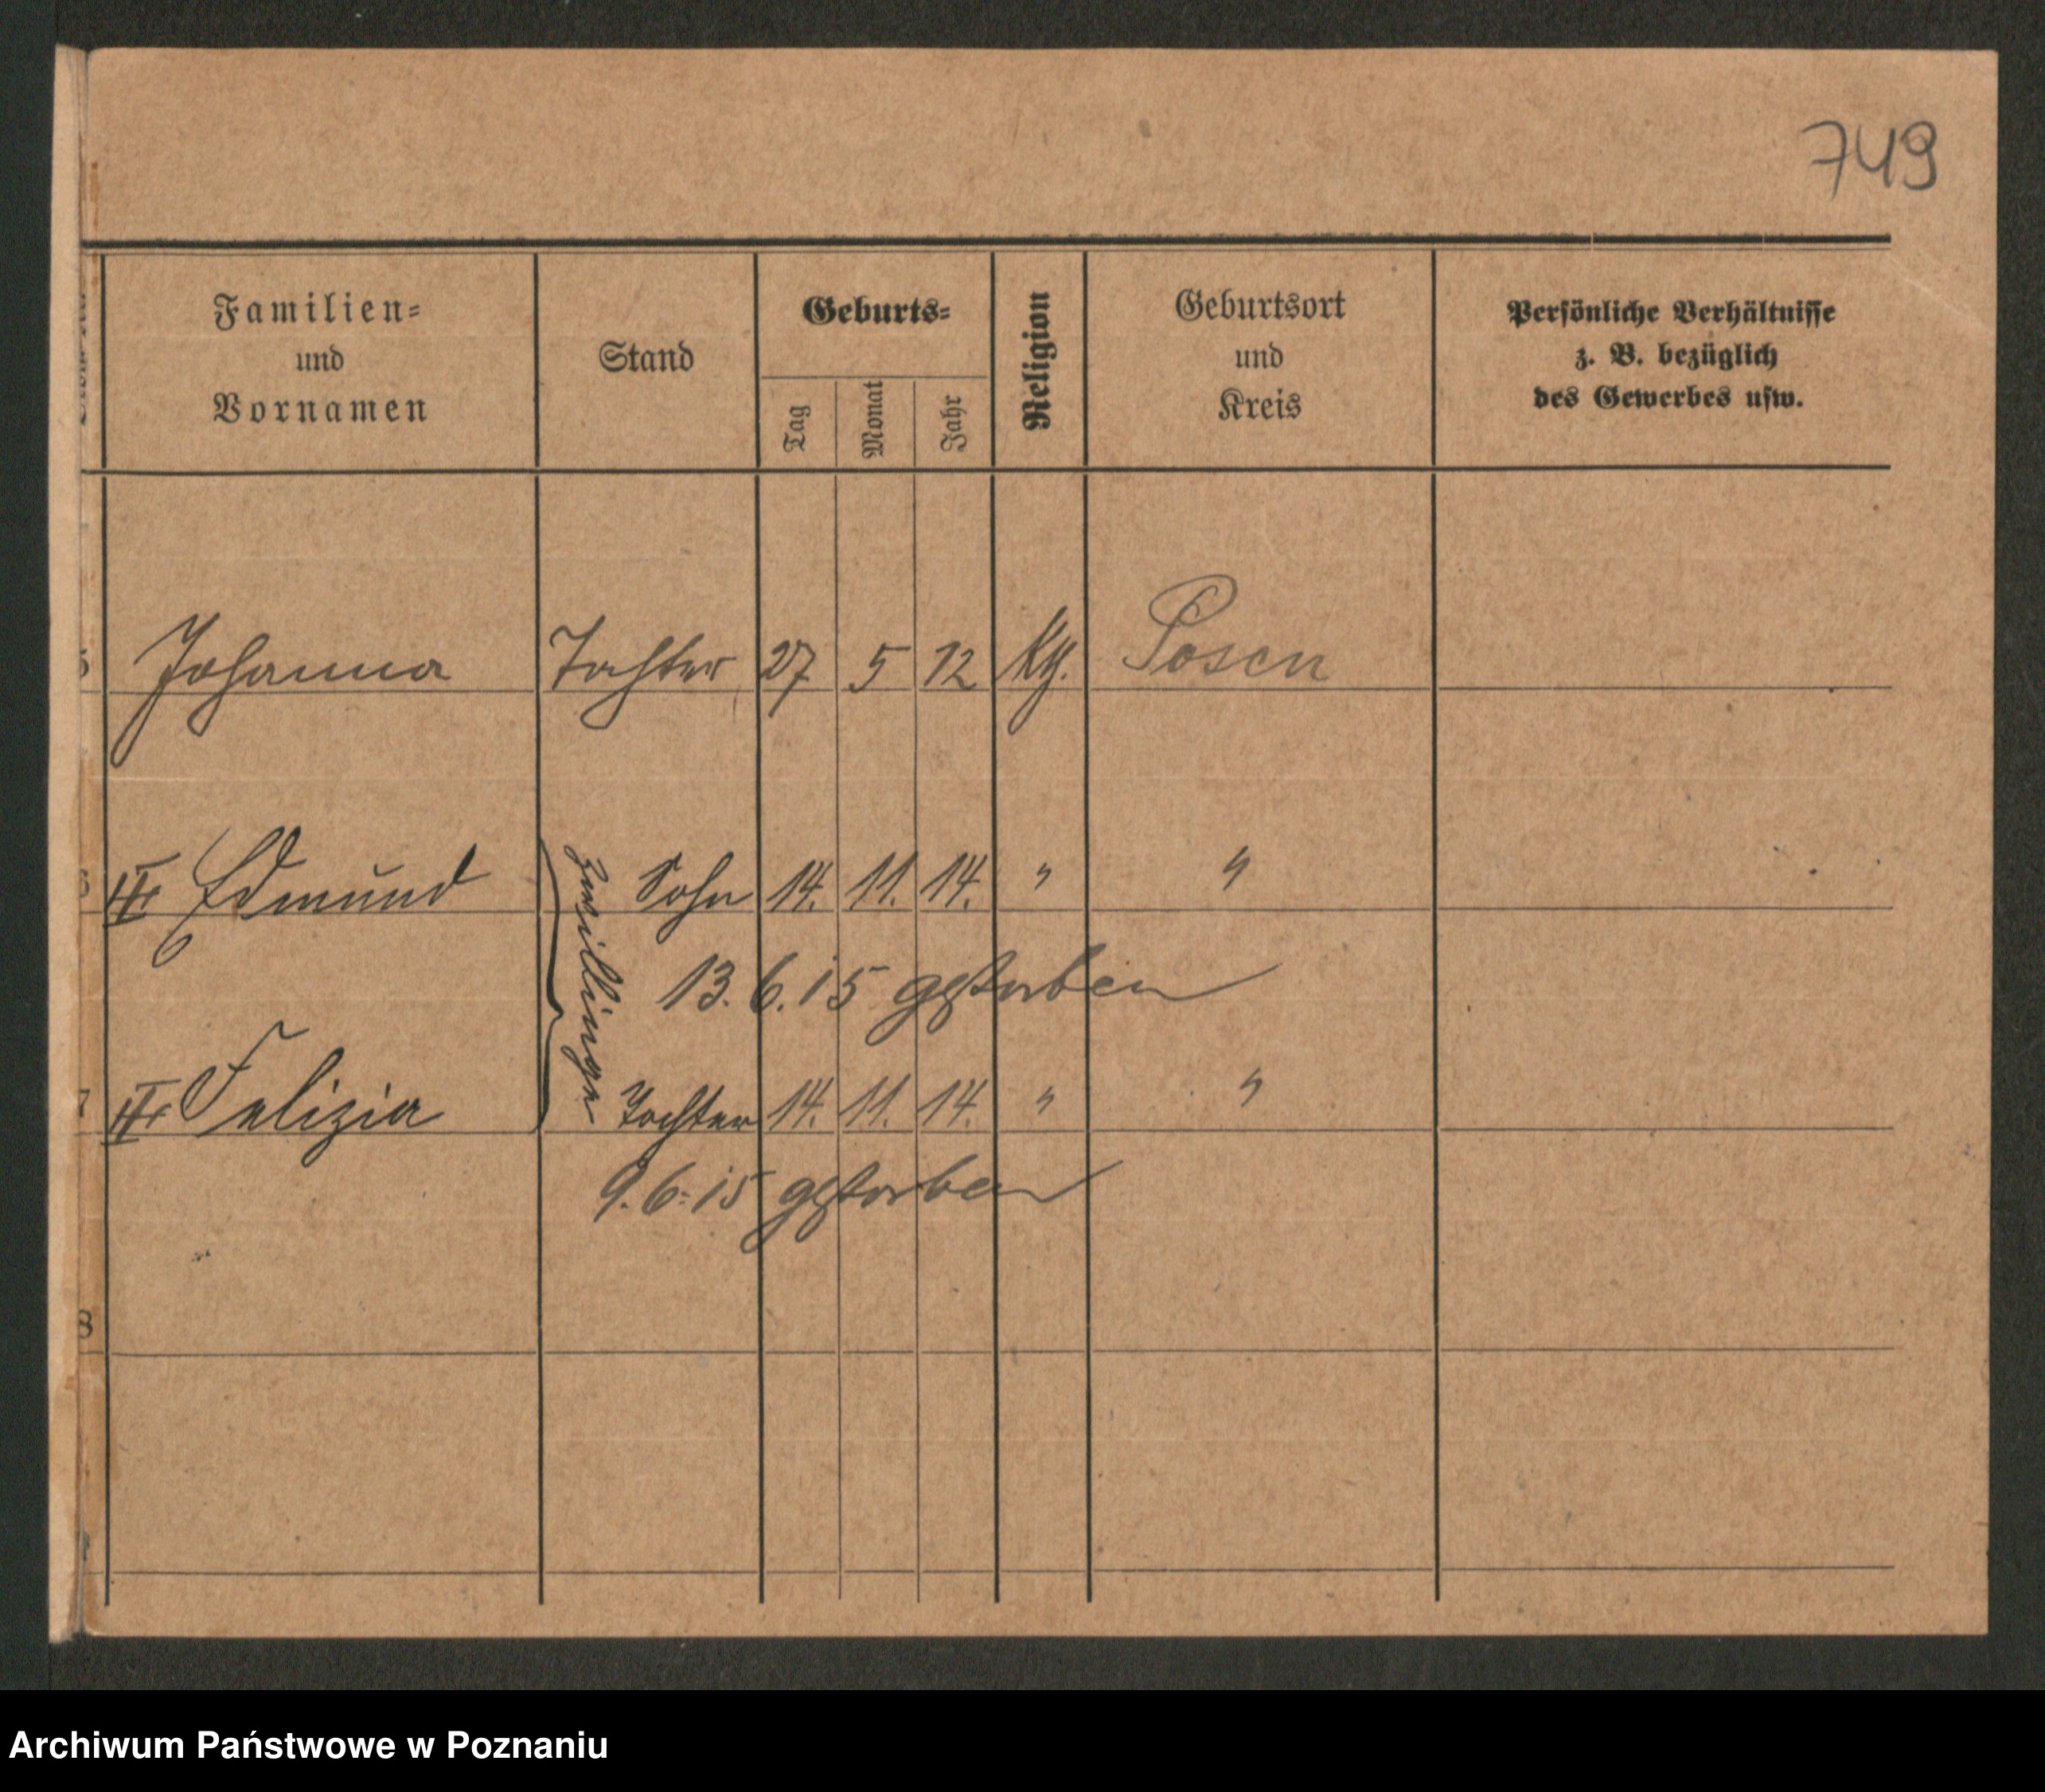 749
Familien-
und
Vornamen
Stand
Geburts-
Tag
Monat
Jahr
Religion
Geburtsort
und
Kreis
Persönliche Verhältnisse
z. B. bezüglich
des Gewerbes usw.
5 Johanna Tochter 27 5 12 Kth. Posen
6 Edmund Sohn 14. 11. 14. " "
Zwillinge
13. 6. 15 gestorben
7 Felizia Tochter 14. 11. 14. " "
9. 6. 15 gestorben
8
Archiwum Państwowe w Poznaniu